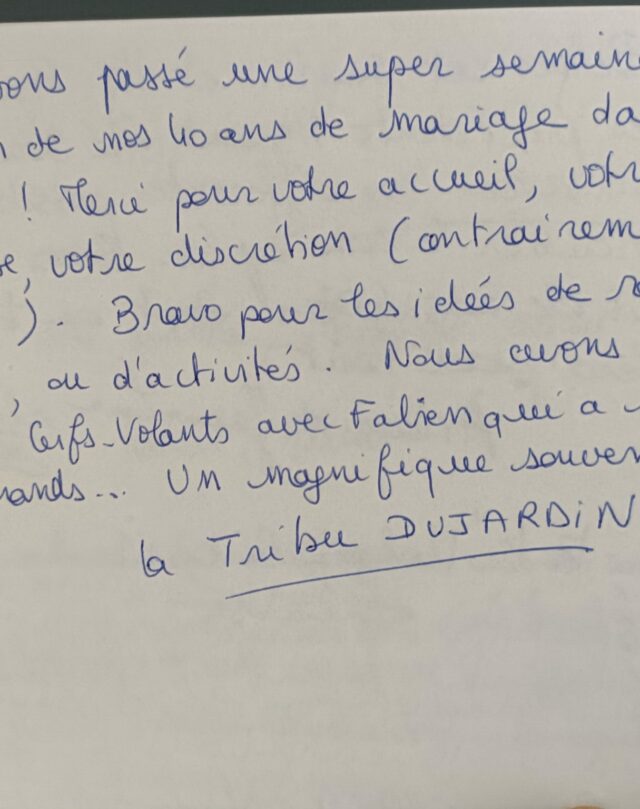 ons passé une super semaine
de nos 40 ans de mariage da
! Merci pour votre accueil, votr
e, votre discrétion (contrairem
). Bravo pour les idées de r
, ou d'activités. Nous avons
Cerfs-Volants avec Fabien qui a
ands... Un magnifique souven
la Tribu DUJARDIN